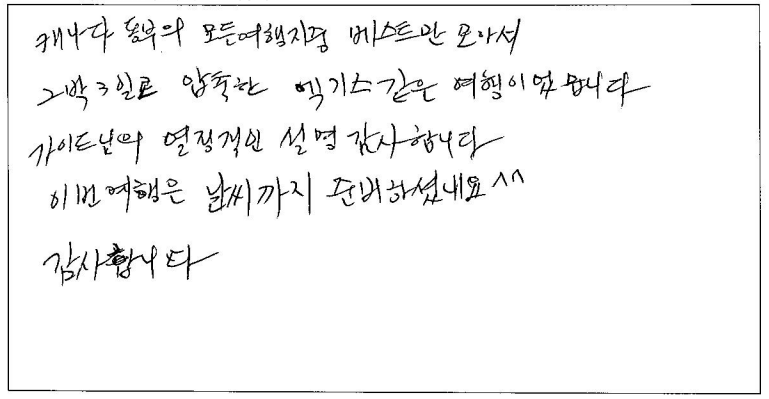 캐나다 동부의 모든여행지중 베스트만 모아서
2박3일로 압축한 엑기스같은 여행이었습니다
가이드님의 열정적인 설명 감사합니다
이번여행은 날씨까지 준비하셨네요^^
감사합니다